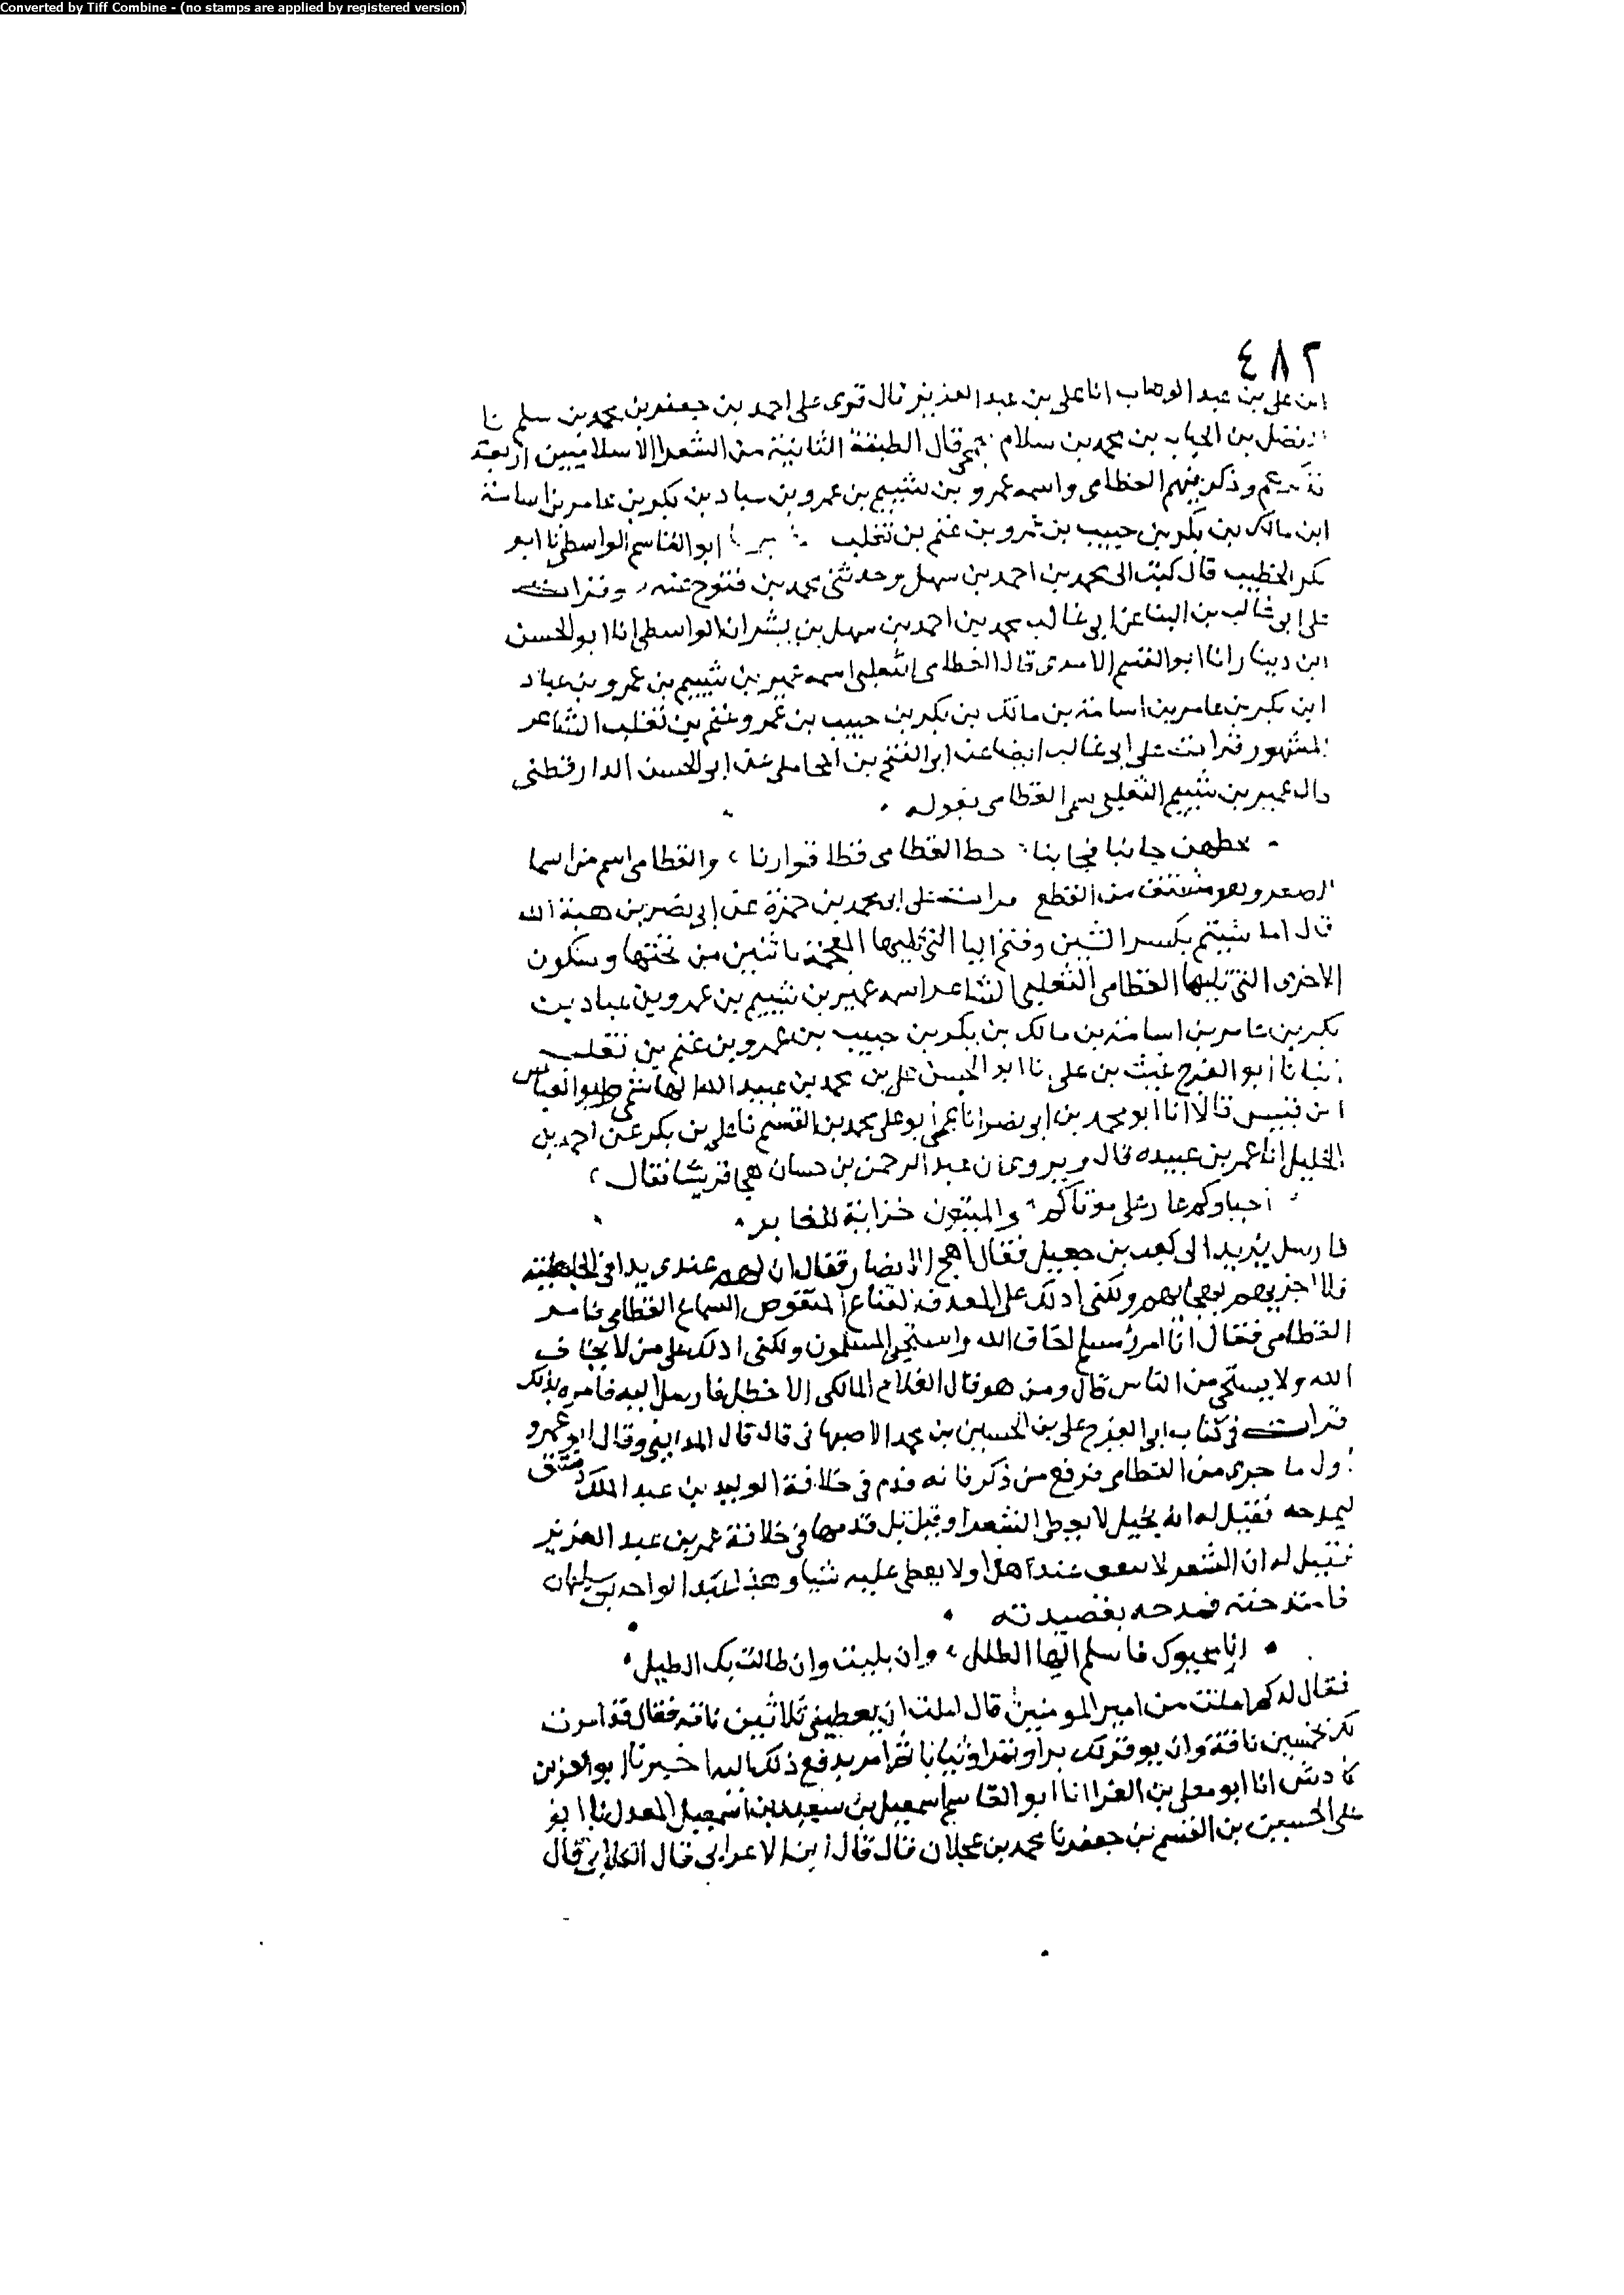 Converted by Tiff Combine - (no stamps are applied by registered version)
٤٨٢
ابن على بن عبد الوهاب انا على بن عبد العزيز قال قرى على احمد بن جعفر بن محمد بن سلم نا
الفضل بن الحباب بن محمد بن سلام قال الطبقة الثانية من الشعرا الاسلاميين اربعة
وذكر منهم القطامى واسمه عمرو بن شييم بن عمرو بن عباد بن بكر بن عامر بن اسامة
ابن مالك بن بكر بن حبيب بن عمرو بن غنم بن تغلب ابو القاسم الواسطى نا ابو
بكر الخطيب قال كتب الى محمد بن احمد بن سهل وحدثنى محمد بن فتوح عنه وقرات
على ابى غالب بن البنا عن ابى غالب محمد بن احمد بن سهل بن بشران الواسطى انا ابو الحسن
ابن دينار انا ابو القسم الامدى قال القطامى التغلبى اسمه عمير بن شييم بن عمرو بن عباد
ابن بكر بن عامر بن اسامة بن مالك بن بكر بن حبيب بن عمرو غنم بن تغلب الشاعر
المشهور قرات على ابى غالب ايضا عن ابى الفتح بن المحاملى عن ابى الحسن الدارقطنى
قال عمير بن شييم التغلبى سمى القطامى بقوله
يحطهن جانبا فجانبا حط القطامى قطا قواربا والقطامى اسم من اسما
الصقر وهو مشتق من القطع قرات على ابى محمد بن حمزة عن ابى نصر بن هبة الله
قال اما شييم بكسر الشين وفتح اليا التى تليها المعجمة باثنين من تحتها وسكون
الاخرى التى تليها القطامى التغلبى الشاعر اسمه عمير بن شييم بن عمرو بن عباد بن
بكر بن عامر بن اسامة بن مالك بن بكر بن حبيب بن عمرو بن غنم بن تغلب
انبانا ابو الفرج غيث بن على نا ابو الحسن على بن محمد بن عبيد الله الهاشمى وابو العباس
ابن قبيس قالا انا ابو محمد بن ابى نصر انا عمى ابو على محمد بن القسم نا على بن بكر عن احمد بن
الخليل انا عمر بن عبيده قال ويروى ان عبد الرحمن بن حسان هجى قريشا فقال
احياوكم عار على موتاكم والميتون خزاية للغابر
فارسل يزيد الى كعب بن جعيل فقال اهج الانصار فقال ان لهم عندى يدا فى الجاهلية
فلا اجزيهم بهجايهم ولكنى ادلك على المعدف القناع المنقوص السماع القطامى فامر
القطامى فقال انا امرؤ مسلم اخاف الله واستحى المسلمون ولكنى ادلك على من لا يخاف
الله ولا يستحى من الناس قال ومن هو قال الغلام المالكى الاخطل فارسل اليه فامره بذلك
قرات فى كتاب ابى الفرج على بن الحسين بن محمد الاصبهانى قال قال المداينى وقال ابو عمرو
اول ما جرى من القطامى فرفع من ذكر انه قدم فى خلافة الوليد بن عبد الملك دمشق
ليمدحه فقيل له انه بخيل لا يعطى الشعرا وقيل بل قدمها فى خلافة عمر بن عبد العزيز
فقيل له ان الشعر لا ينفق عند هذا ولا يعطى عليه شيا وهذا عبد الواحد بن سليمان
فامتدحه فمدحه بقصيدته
انا محيوك فاسلم ايها الطلل وان بليت وان طالت بك الطيل
فقال له كم املت من امير المومنين قال املت ان يعطينى ثلاثين ناقة فقال قد امرت
لك بخمسين ناقة وان يوقر لك برا وتمرا وثيابا ثم امر بدفع ذلك اليه اخبرنا ابو العز بن
كادش انا ابو يعلى بن الفرا انا ابو القاسم اسمعيل بن سعيد بن اسمعيل المعدل نا ابو
على الحسين بن القسم بن جعفر نا محمد بن عجلان قال قال ابن الاعرابى قال الكلابى قال